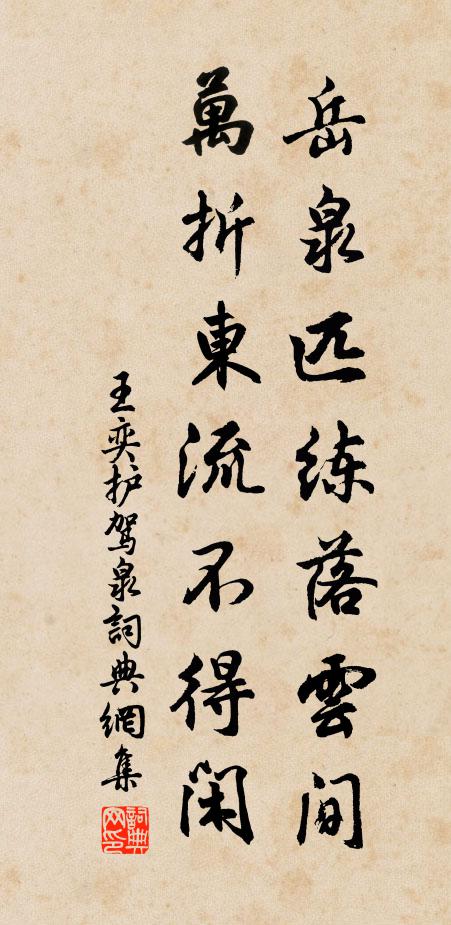 岳泉匹练落雲间
萬折東流不得闲
王奕护駕泉詞典網集
詞典网印